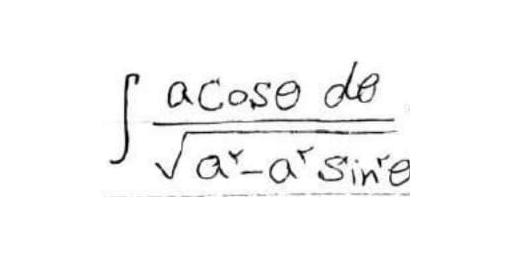 ∫ a cosθ dθ / √(a² - a² sin²θ)